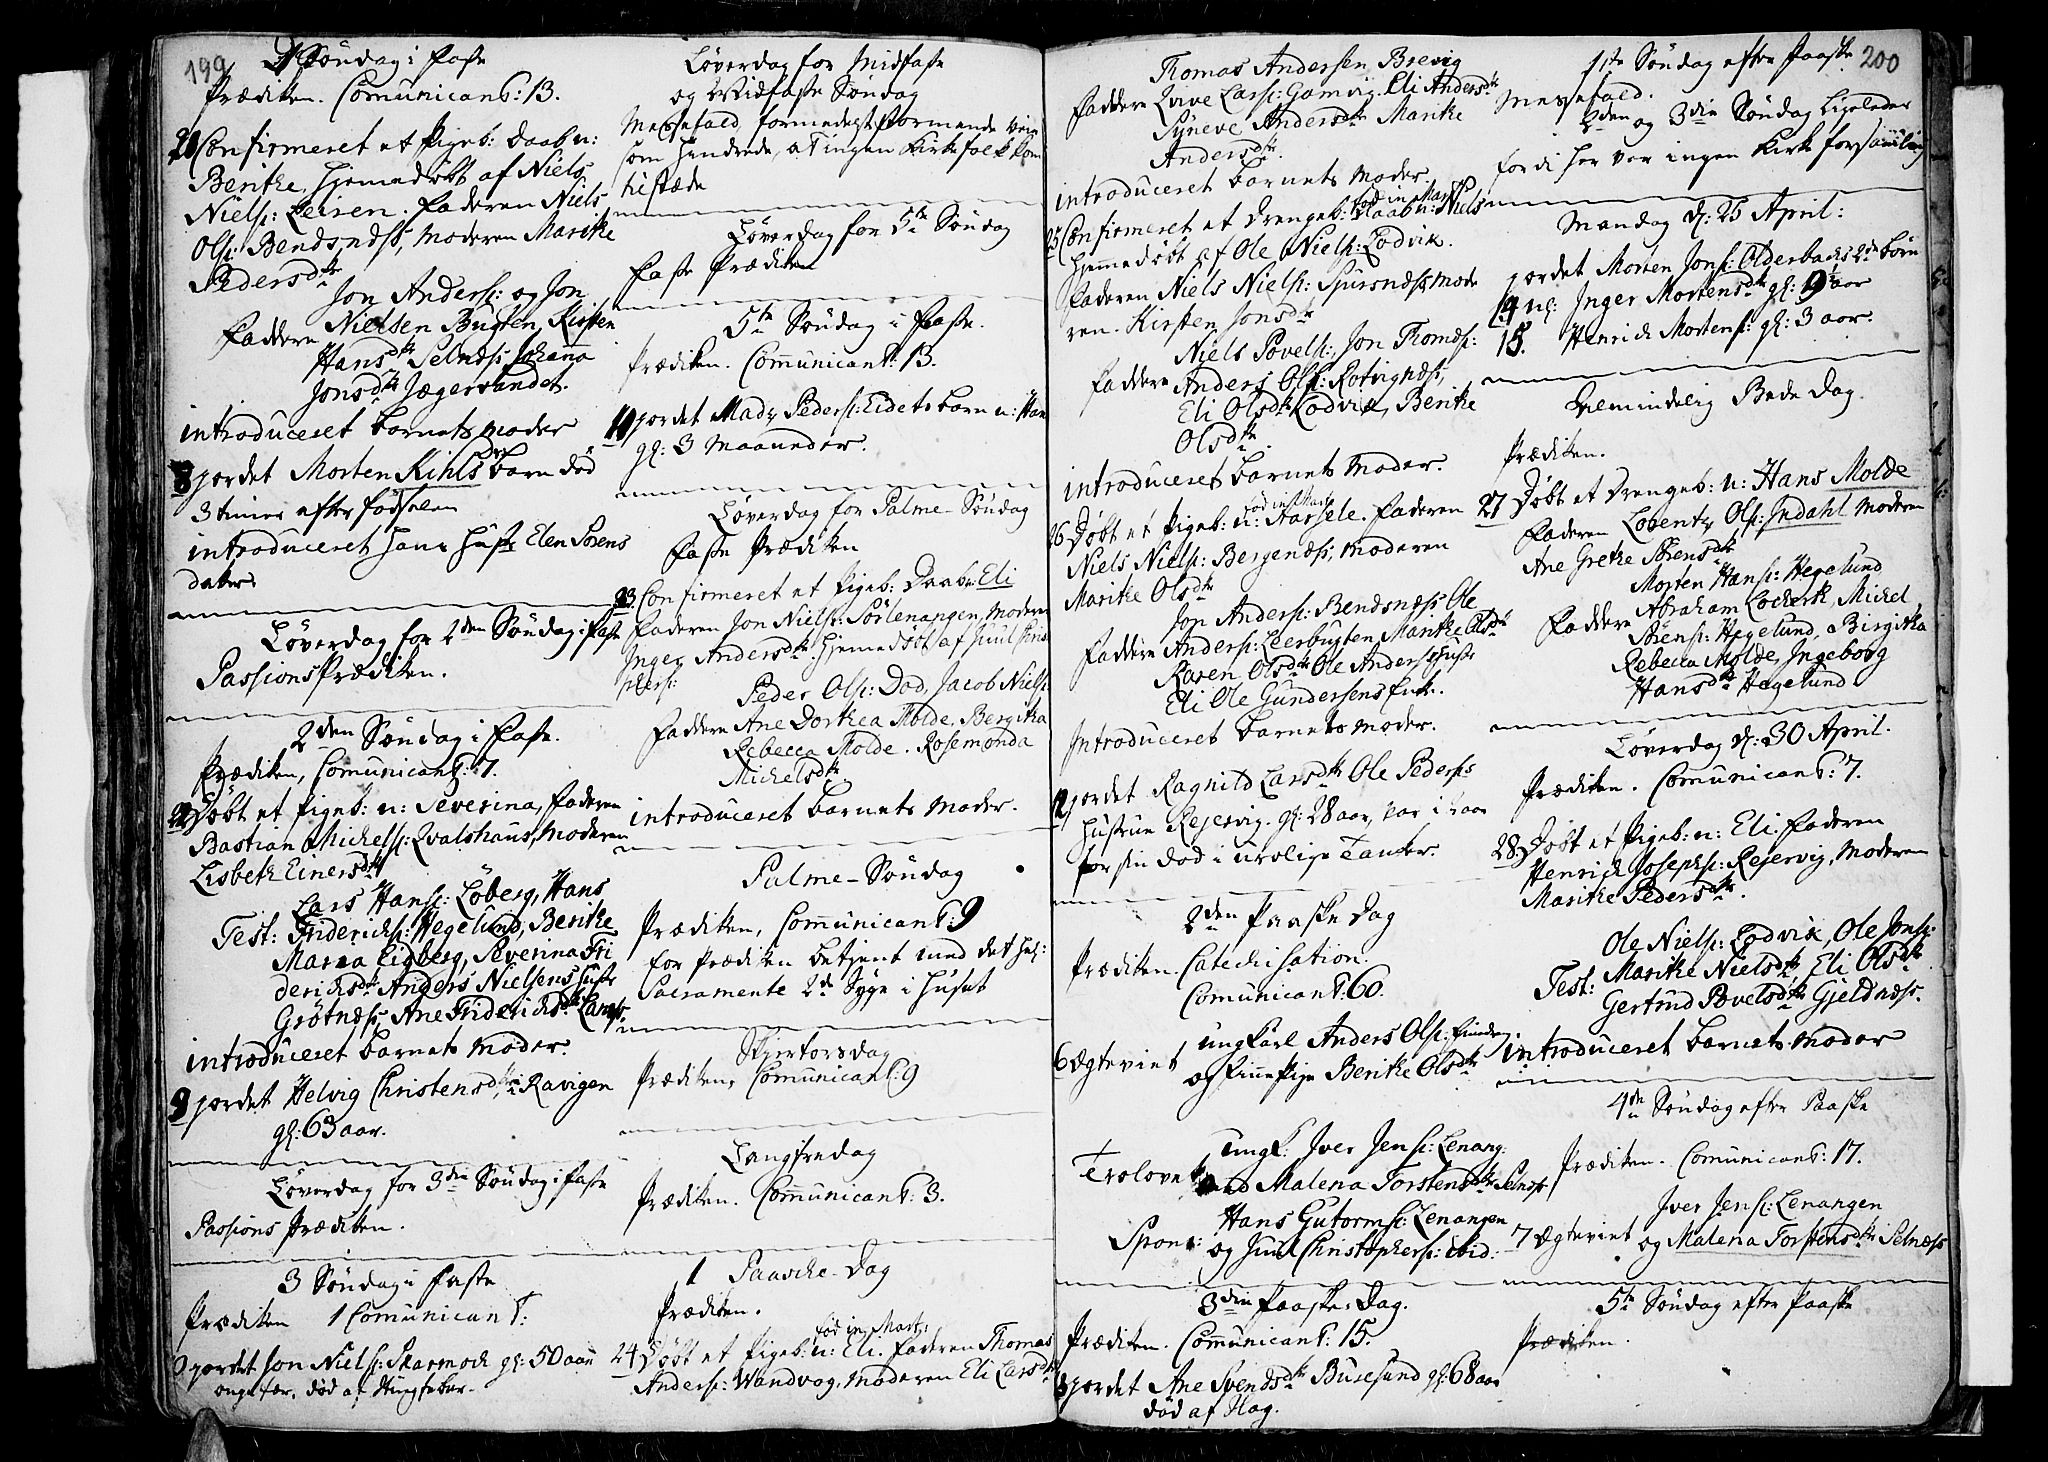 199
1 Søndag i Faste
Prædiken. Comunicant: 13.
21 Confirmeret et Pigeb: Daab n:
Berithe, hjemedøbt af Niels
Niels: Leisen. Faderen Niels
Ols: Bendsnæs, Moderen Marithe
Pedersdtr
Jon Anders: og Jon
Faddere Nielsen Bugten, Kirsten
Hansdtr Selnæs, Johanna
Jonsdtr Jægervandet.
introduceret barnets moder
8 jordet Morten Kihls barn død
3 timer efter fødselen
introduceret hans hustr Elen Sørens
datter
Løverdag for 2den Søndag i Faste
Passions Prædiken.
2den Søndag i Faste.
Prædiken, Comunicant: 7.
22 Døbt et Pigeb: n: Severina, Faderen
Bastian Michels: Qvalshaus, Moderen
Lisbeth Einersdtr
Lars Hans: Løberg, Hans
Test: Friderichs: Hegelund, Berithe
Maria Eigberg, Severina Fri
derichsdtr Anders Nielsens Hustr
Grøtnæs, Ane Friderichsdtr Langs.
introduceret barnets moder.
9 jordet Helvig Christensdtr i Ravigen
gl: 63 aar.
Løverdag for 3die Søndag i Faste
Passions Prædiken.
3 Søndag i Faste
Prædiken 1 Comunicant:
jordet Jon Niels: Skarmoch gl: 50 aar
ongefær, død af Stingfeber.
Løverdag for Midfaste
og Midfaste Søndag
Messefald, formedelst stormende Veir
som hendrede, at ingen Kirkefolk kom
tilstæde
Løverdag for 5te Søndag
Faste Prædiken
5te Søndag i Faste.
Prædiken. Comunicant: 13.
10 jordet Mads Peders: Eidets barn n: Hans
gl: 3 Maaneder.
Løverdag for Palme-Søndag
Faste Prædiken
23. Confirmeret et Pigeb: Daab n: Eli
Faderen Jon Niels: Sørlenangen, Moderen
Inger Andersdtr. hjemedøbt af Juul Chris
phers:
Peder Ols: Dod, Jacob Niels:
Faddere Ane Dorthea Molde, Bergitha
Rebecca Molde. Rosemonda
Michelsdtr
introduceret barnets Moder.
Palme-Søndag
Prædiken, Comunicant: 9
for Prædiken betjent med det hel:
Sacramente 2de Syge i Huset
Skjertorsdag
Prædiken, Comunicant: 9
Langfredag
Prædiken. Comunicant: 3.
1 Paasche-Dag
Prædiken.
fød in Mart:
24 Døbt et Pigeb: n: Eli. Faderen Thomas
Anders: Wandvog, Moderen Eli Larsdtr
Thomas Andersen Brevig
Faddere Qvive Lars: Gamvig. Eli Andersdtr
Syneve Andersdtr Marithe
Andersdtr.
introduceret barnets Moder.
fød in Mart
25 Confirmeret et Drengeb: Daab n: Niels
hjemmedøbt af Ole Niels: Lodvik.
Faderen Niels Niels: Spursnæs, Mode
ren. Kirsten Jonsdtr
Niels Povels:, Jon Thomæs:
Faddere Anders Ols: Rotvignæs,
Eli Olsdtr Lodvik, Berithe
Olsdtr
introduceret barnets Moder.
fød in Mart
26 Døbt et Pigeb: n: Aasele. Faderen
Niels Niels: Bergenæs, Moderen
Marithe Olsdtr
Jon Anders: Bendsnæs Ole
Faddere Anders: Leerbugten, Marithe Olsdtr
Karen Olsdtr Ole Anders: Hustr
Eli Ole Gundersens Enke.
Introduceret barnets Moder.
12 jordet Ragnild Larsdtr Ole Peders:
Hustrue Rejervig. gl: 28 aar, var i
for sin død i urolige Tanker.
2den Paaske Dag
Prædiken. Catechisation.
Comunicant: 60.
ungkarl Anders Ols:
6 Ægteviet
og Finnepige Berithe Olsdtr
ungk: Iver Jens: Lenang:
Trolovet
med Malena Torstensdtr Selnæs
Hans Gutorms: Lenangen
Spons:
og Juul Christophers: ibid:
3die Paaske-Dag.
Prædiken. Comunicant: 15.
13 jordet Ane Svendsdtr Buresund gl: 68 aar
død af Slag.
200
1ste Søndag efter Paaske
Messefald.
2den og 3die Søndag Ligeledes
fordi her var ingen Kirke forsamling
Mandag d: 25 April:
jordet Morten Jons: Olderbachs 2de børn
14 nl: Inger Mortensdtr gl: 9 1/2 aar
15. Henrich Mortens: gl: 3 aar.
Almindelig Bede Dag.
Prædiken.
27 Døbt et Drengeb: n: Hans Molde
Faderen Lorentz Ols: Indahl Moderen
Ane Grethe Sørensdtr
Morten Hans: Hegelund
Faddere Abraham Lockert, Michel
Søens: Hegelund, Birgitha
Rebecca Molde, Ingeborg
Hansdtr Hegelund
Løverdag d: 30 April.
Prædiken. Comunicant: 7.
28 Døbt et Pigeb: n: Eli. Faderen
Henrich Josephs: Rejervig, Moderen
Marithe Pedersdtr.
Ole Niels: Lodvik, Ole Jons:
Test: Marithe Nielsdtr, Eli Olsdtr
Gertrud Povelsdtr Gjeldnæs.
introduceret barnets Moder
4de Søndag efter Paaske
Prædiken. Comunicant: 17.
Iver Jens: Lenangen
7 Ægteviet og Malena Torstensdtr Selnæs
5te Søndag efter Paaske
Prædiken.